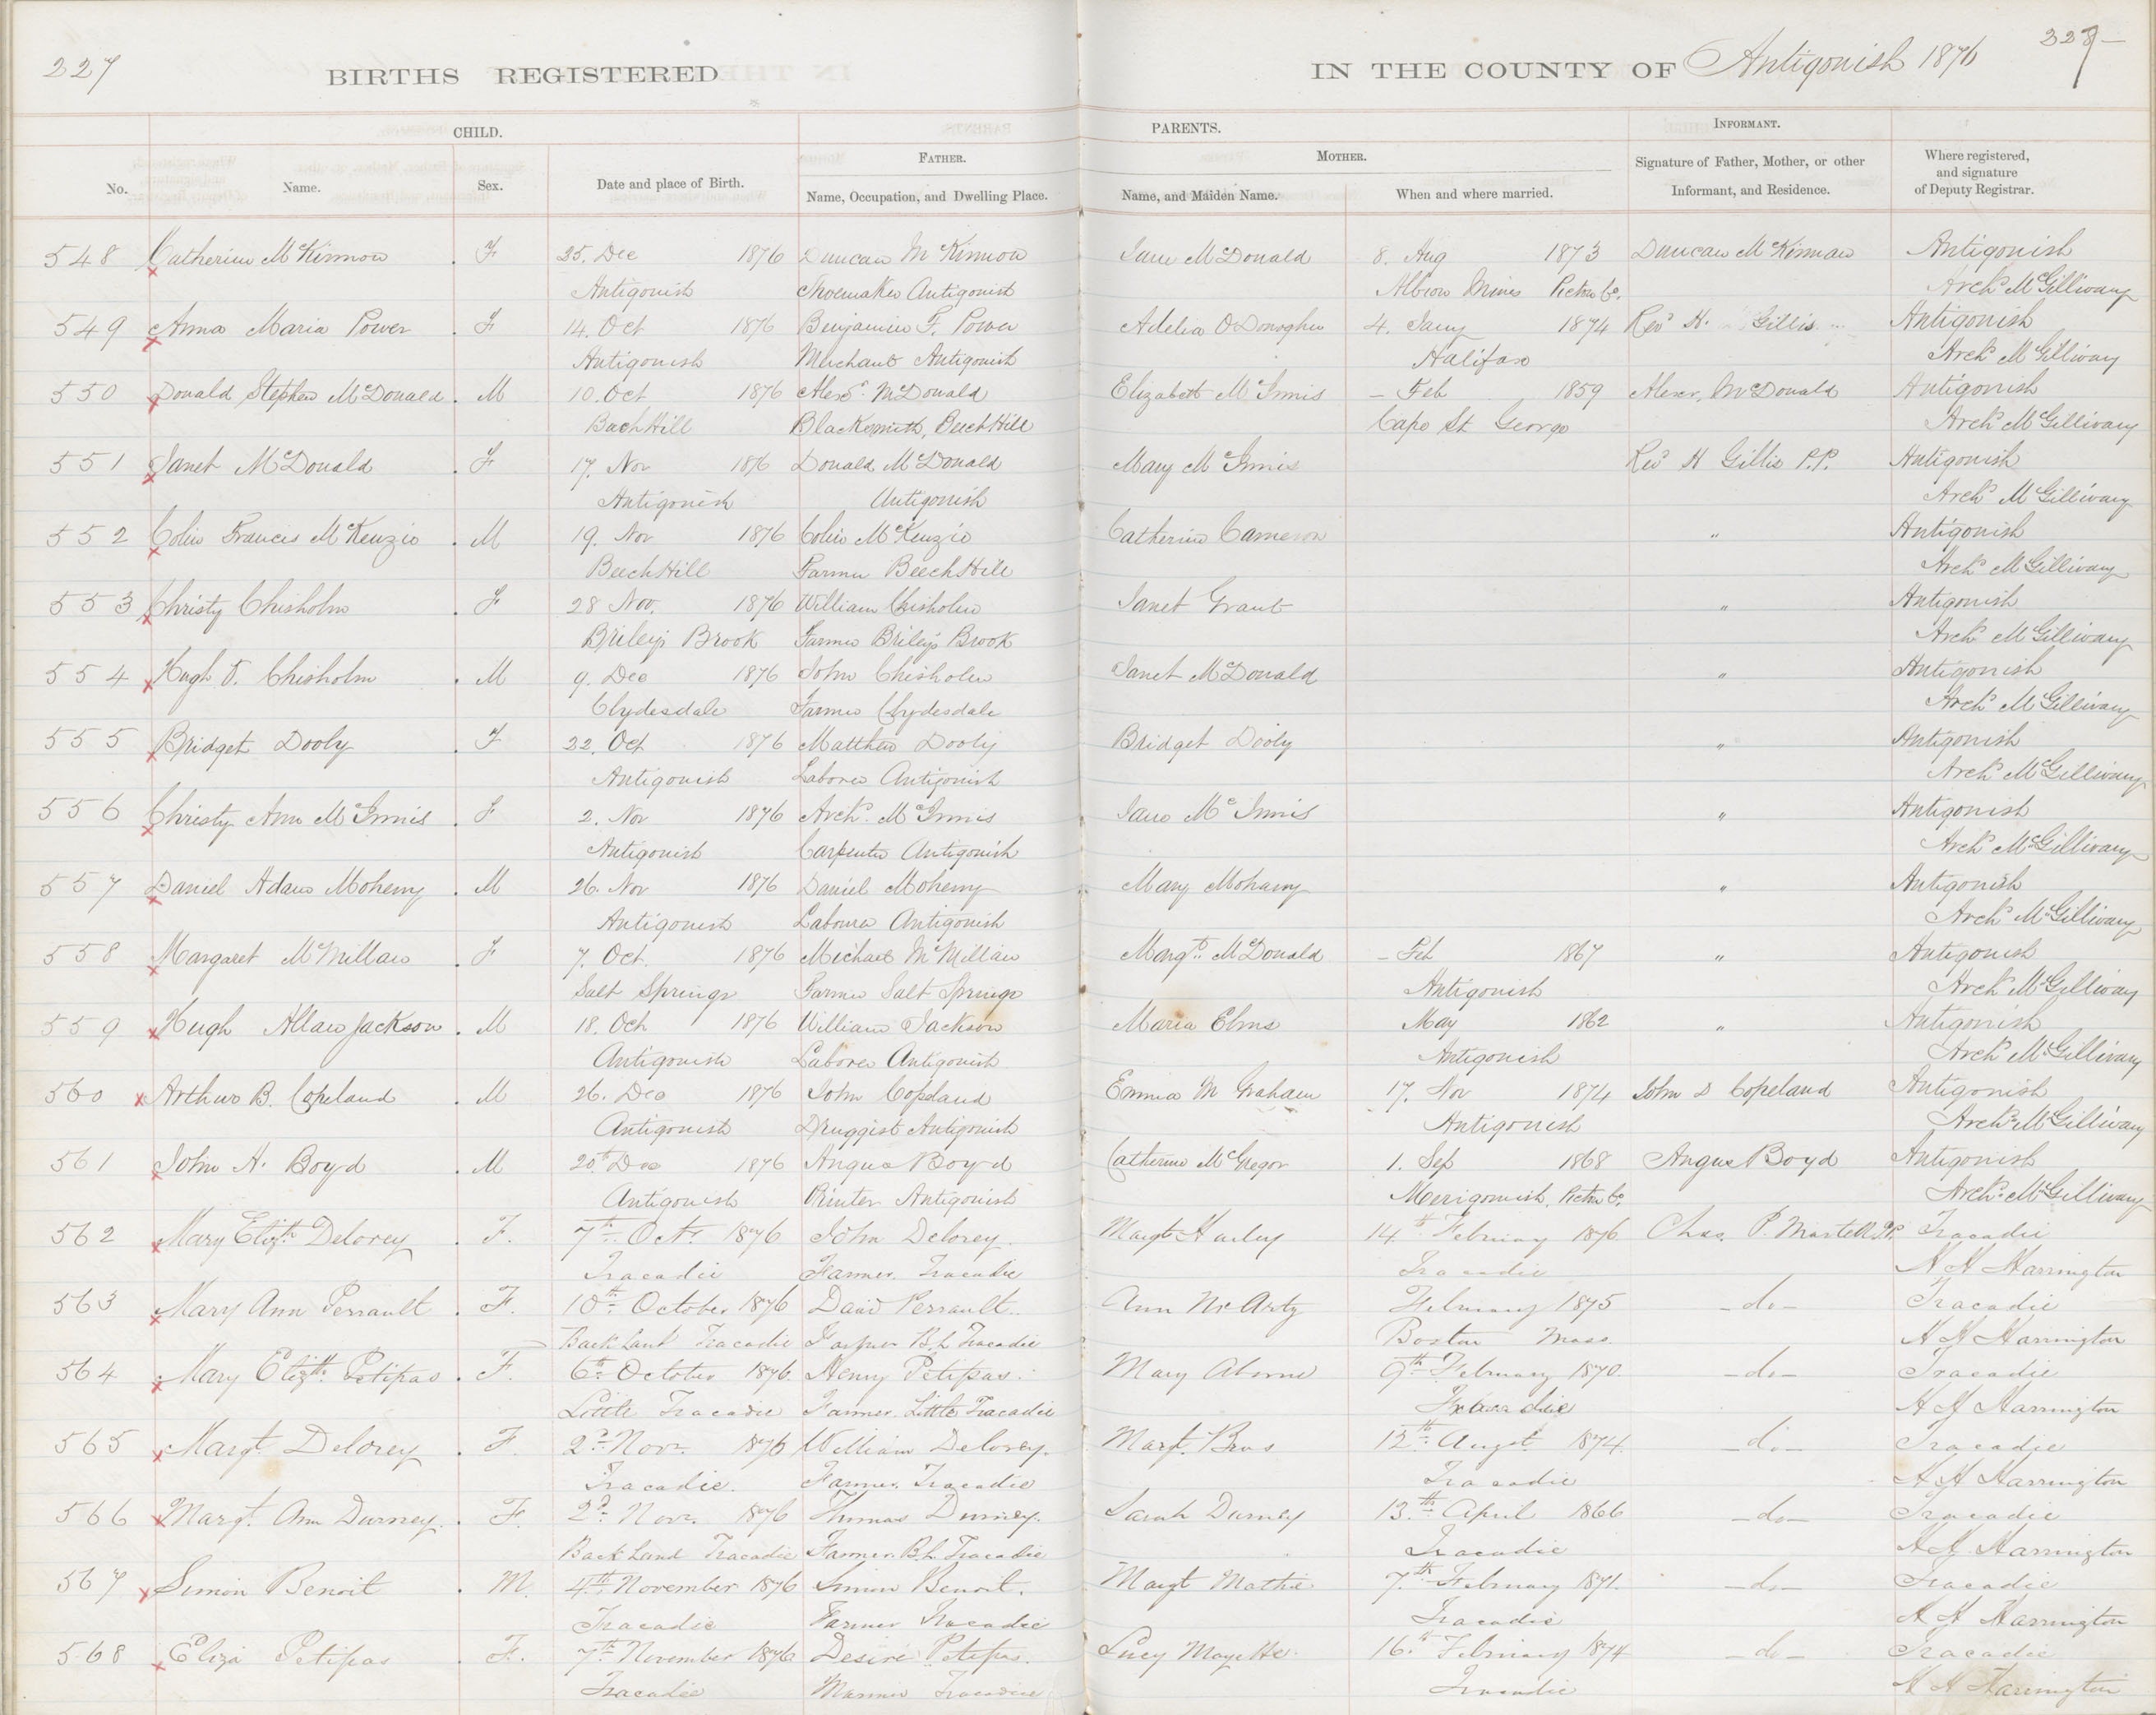 227
BIRTHS REGISTERED
IN THE COUNTY OF Antigonish 1876
227
CHILD.
PARENTS.
INFORMANT.
FATHER.
MOTHER.
No. Name. Sex. Date and place of Birth. Name, Occupation, and Dwelling Place. Name, and Maiden Name. When and where married. Signature of Father, Mother, or other Informant, and Residence. Where registered, and signature of Deputy Registrar.
548 Catherine McKinnon F 25. Dec 1876 Duncan McKinnon Jane McDonald 8. Aug 1873 Duncan McKinnan Antigonish
Antigonish Shoemaker Antigonish Albion Mines Pictou Co. Archd McGillivary
549 Anna Maria Power F 14. Oct 1876 Benjamin F. Power Adelia ODonoghue 4. Jany 1874 Revd H. Gillis Antigonish
Antigonish Merchant Antigonish Halifax Archd McGillivary
550 Donald Stephen McDonald M 10. Oct 1876 Alexr. McDonald Elizabeth McInnis – Feb 1859 Alexr. McDonald Antigonish
BeechHill Blacksmith, BeechHill Cape St George Archd McGillivary
551 Janet McDonald F 17. Nov 1876 Donald McDonald Mary McInnis Revd H Gillis P.P. Antigonish
Antigonish Antigonish Archd McGillivary
552 Colin Francis McKenzie M 19. Nov 1876 Colin McKenzie Catherine Cameron " Antigonish
BeechHill Farmer BeechHill Archd McGillivary
553 Christy Chisholm F 28 Nov. 1876 William Chisholm Janet Grant " Antigonish
Briley's Brook Farmer Briley's Brook Archd McGillivary
554 Hugh J. Chisholm M 9. Dec 1876 John Chisholm Janet McDonald " Antigonish
Clydesdale Farmer Clydesdale Archd McGillivary
555 Bridget Dooly F 22. Oct 1876 Matthew Dooly Bridget Dooly " Antigonish
Antigonish Laborer Antigonish Archd McGillivary
556 Christy Ann McInnis F 2. Nov 1876 Archd. McInnis Jane McInnis " Antigonish
Antigonish Carpenter Antigonish Archd McGillivary
557 Daniel Adam Moheny M 26. Nov 1876 Daniel Moheny Mary Mohany " Antigonish
Antigonish Labourer Antigonish Archd McGillivary
558 Margaret McMillan F 7. Oct. 1876 Michael McMillan Margt. McDonald – Feb 1867 " Antigonish
Salt Springs Farmer Salt Springs Antigonish Archd McGillivary
559 Hugh Allan Jackson M 18. Oct 1876 William Jackson Maria Elms May 1862 " Antigonish
Antigonish Laborer Antigonish Antigonish Archd McGillivary
560 Arthur B. Copeland M 26. Dec 1876 John Copeland Emma M Graham 17. Nov 1874 John D Copeland Antigonish
Antigonish Druggist Antigonish Antigonish Archd McGillivary
561 John A. Boyd M 20th Dec 1876 Angus Boyd Catherine McGregor 1. Sep 1868 Angus Boyd Antigonish
Antigonish Printer Antigonish Merigomish, Pictou Co. Archd. McGillivary
562 Mary Elizth Delorey F. 7th Oct. 1876 John Delorey. Margt Hurley 14th February 1876 Chas. P. Martell J.P. Tracadie
Tracadie Farmer. Tracadie Tracadie Harrington
563 Mary Ann Perrault F. 10th October 1876 David Perrault Ann McArty February 1875 –do– Tracadie
Back Land Tracadie Farmer B.L Tracadie Boston Mass. Harrington
564 Mary Elizth Petipas F. 6th October 1876. Henry Petipas. Mary 9th February 1870. –do– Tracadie
Little Tracadie Farmer. Little Tracadie Tracadie Harrington
565 Margt. Delorey F. 2d Novr. 1876 William Delorey. Margt. 12th Augst 1874. –do– Tracadie
Tracadie. Farmer. Tracadie Tracadie Harrington
566 Margt. Ann Durney. F. 2d Novr. 1876 Thomas Durney. Sarah Durney 13th April 1866 –do– Tracadie
Back Land Tracadie Farmer. B.L. Tracadie Tracadie Harrington
567 Simon Benoit M. 4th November 1876 Simon Benoit. Margt Mathie 7th February 1871. –do– Tracadie
Tracadie Farmer Tracadie Tracadie Harrington
568 Eliza Petipas F. 7th November 1876 Desire Petipas. Lucy 16th February 1874 –do– Tracadie
Tracadie Tracadie Tracadie Harrington